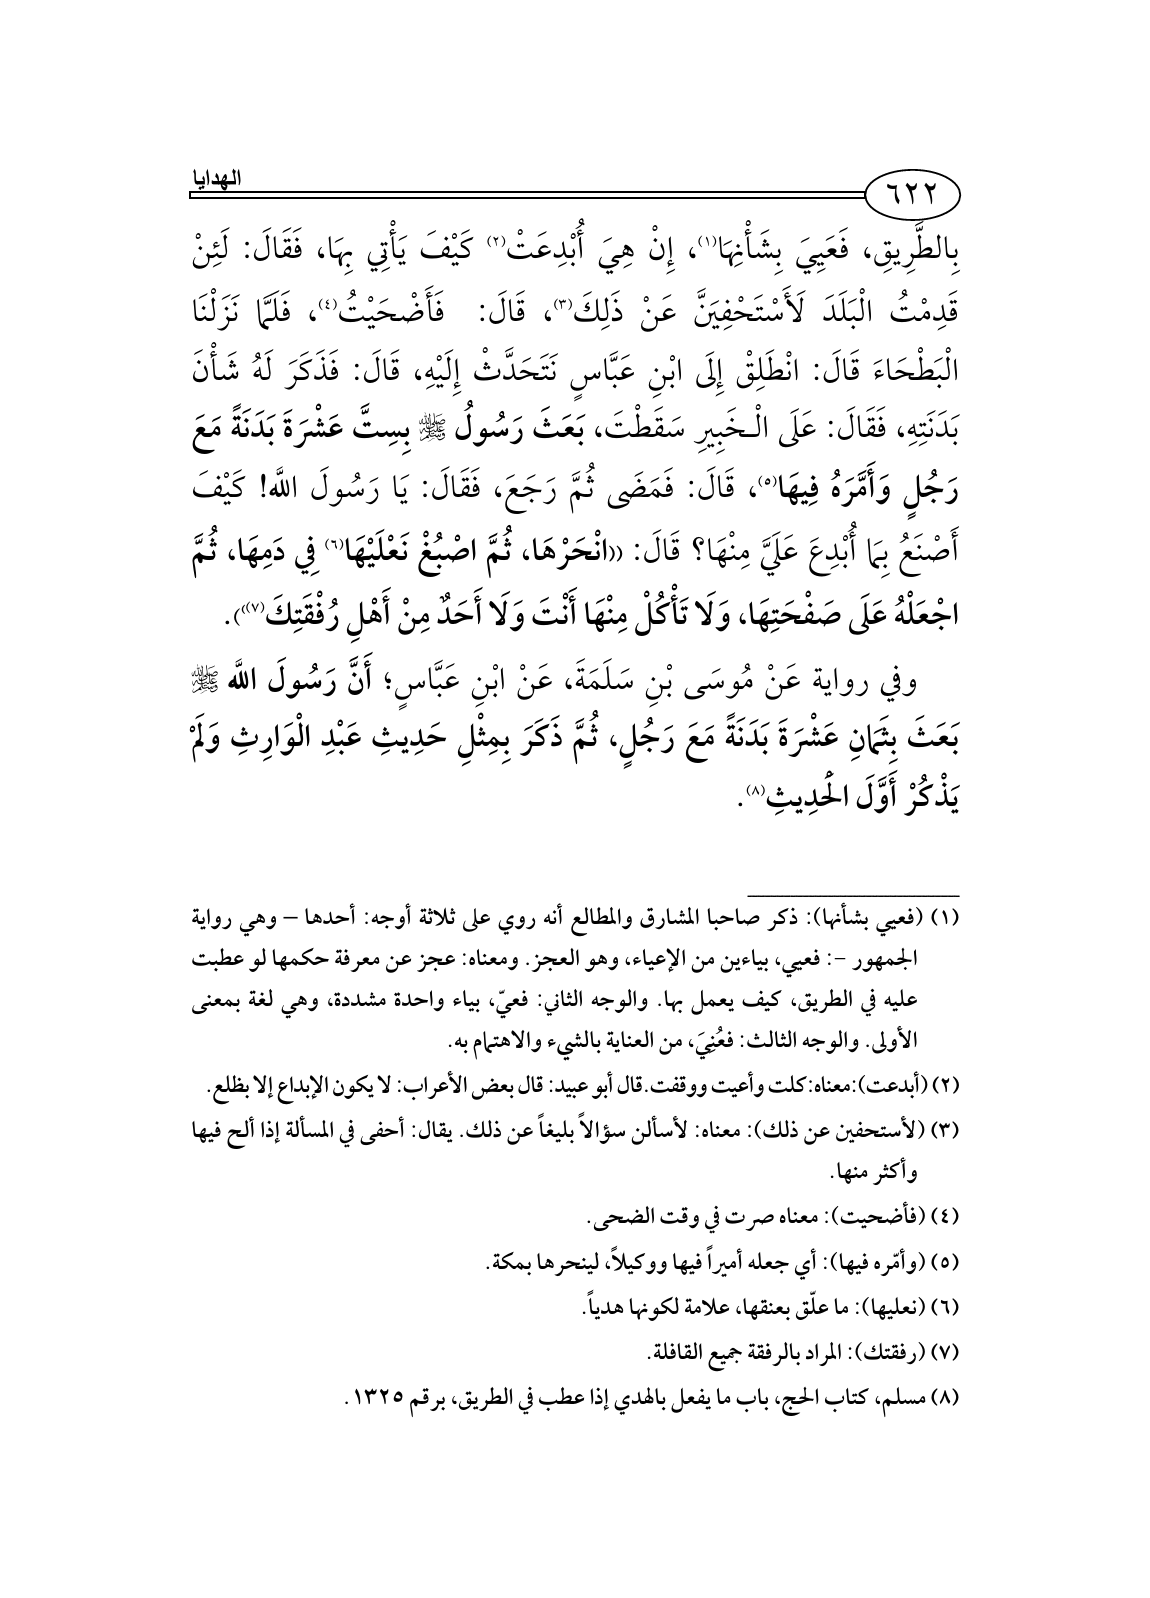 الهدايا
٦٢٢
بِالطَّرِيقِ، فَعَيِيَ بِشَأْنِهَا(١)، إِنْ هِيَ أُبْدِعَتْ(٢) كَيْفَ يَأْتِي بِهَا، فَقَالَ: لَئِنْ
قَدِمْتُ الْبَلَدَ لَأَسْتَحْفِيَنَّ عَنْ ذَلِكَ(٣)، قَالَ: فَأَضْحَيْتُ(٤)، فَلَمَّا نَزَلْنَا
الْبَطْحَاءَ قَالَ: انْطَلِقْ إِلَى ابْنِ عَبَّاسٍ نَتَحَدَّثْ إِلَيْهِ، قَالَ: فَذَكَرَ لَهُ شَأْنَ
بَدَنَتِهِ، فَقَالَ: عَلَى الْـخَبِيرِ سَقَطْتَ، بَعَثَ رَسُولُ ﷺ بِسِتَّ عَشْرَةَ بَدَنَةً مَعَ
رَجُلٍ وَأَمَّرَهُ فِيهَا(٥)، قَالَ: فَمَضَى ثُمَّ رَجَعَ، فَقَالَ: يَا رَسُولَ اللَّه! كَيْفَ
أَصْنَعُ بِمَا أُبْدِعَ عَلَيَّ مِنْهَا؟ قَالَ: ((انْحَرْهَا، ثُمَّ اصْبُغْ نَعْلَيْهَا(٦) فِي دَمِهَا، ثُمَّ
اجْعَلْهُ عَلَى صَفْحَتِهَا، وَلَا تَأْكُلْ مِنْهَا أَنْتَ وَلَا أَحَدٌ مِنْ أَهْلِ رُفْقَتِكَ(٧))).
وفي رواية عَنْ مُوسَى بْنِ سَلَمَةَ، عَنْ ابْنِ عَبَّاسٍ؛ أَنَّ رَسُولَ اللَّه ﷺ
بَعَثَ بِثَمَانِ عَشْرَةَ بَدَنَةً مَعَ رَجُلٍ، ثُمَّ ذَكَرَ بِمِثْلِ حَدِيثِ عَبْدِ الْوَارِثِ وَلَمْ
يَذْكُرْ أَوَّلَ الْحَدِيثِ(٨).
(١) (فعيي بشأنها): ذكر صاحبا المشارق والمطالع أنه روي على ثلاثة أوجه: أحدها – وهي رواية
الجمهور -: فعيي، بياءين من الإعياء، وهو العجز. ومعناه: عجز عن معرفة حكمها لو عطبت
عليه في الطريق، كيف يعمل بها. والوجه الثاني: فعيّ، بياء واحدة مشددة، وهي لغة بمعنى
الأولى. والوجه الثالث: فعُنِيَ، من العناية بالشيء والاهتمام به.
(٢) (أبدعت):معناه:كلت وأعيت ووقفت.قال أبو عبيد: قال بعض الأعراب: لا يكون الإبداع إلا بظلع.
(٣) (لأستحفين عن ذلك): معناه: لأسألن سؤالاً بليغاً عن ذلك. يقال: أحفى في المسألة إذا ألح فيها
وأكثر منها.
(٤) (فأضحيت): معناه صرت في وقت الضحى.
(٥) (وأمّره فيها): أي جعله أميراً فيها ووكيلاً، لينحرها بمكة.
(٦) (نعليها): ما علّق بعنقها، علامة لكونها هدياً.
(٧) (رفقتك): المراد بالرفقة جميع القافلة.
(٨) مسلم، كتاب الحج، باب ما يفعل بالهدي إذا عطب في الطريق، برقم ١٣٢٥.